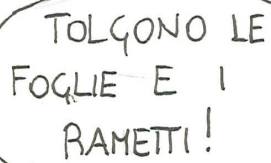 TOLGONO LE
FOGLIE E I
RAMETTI!